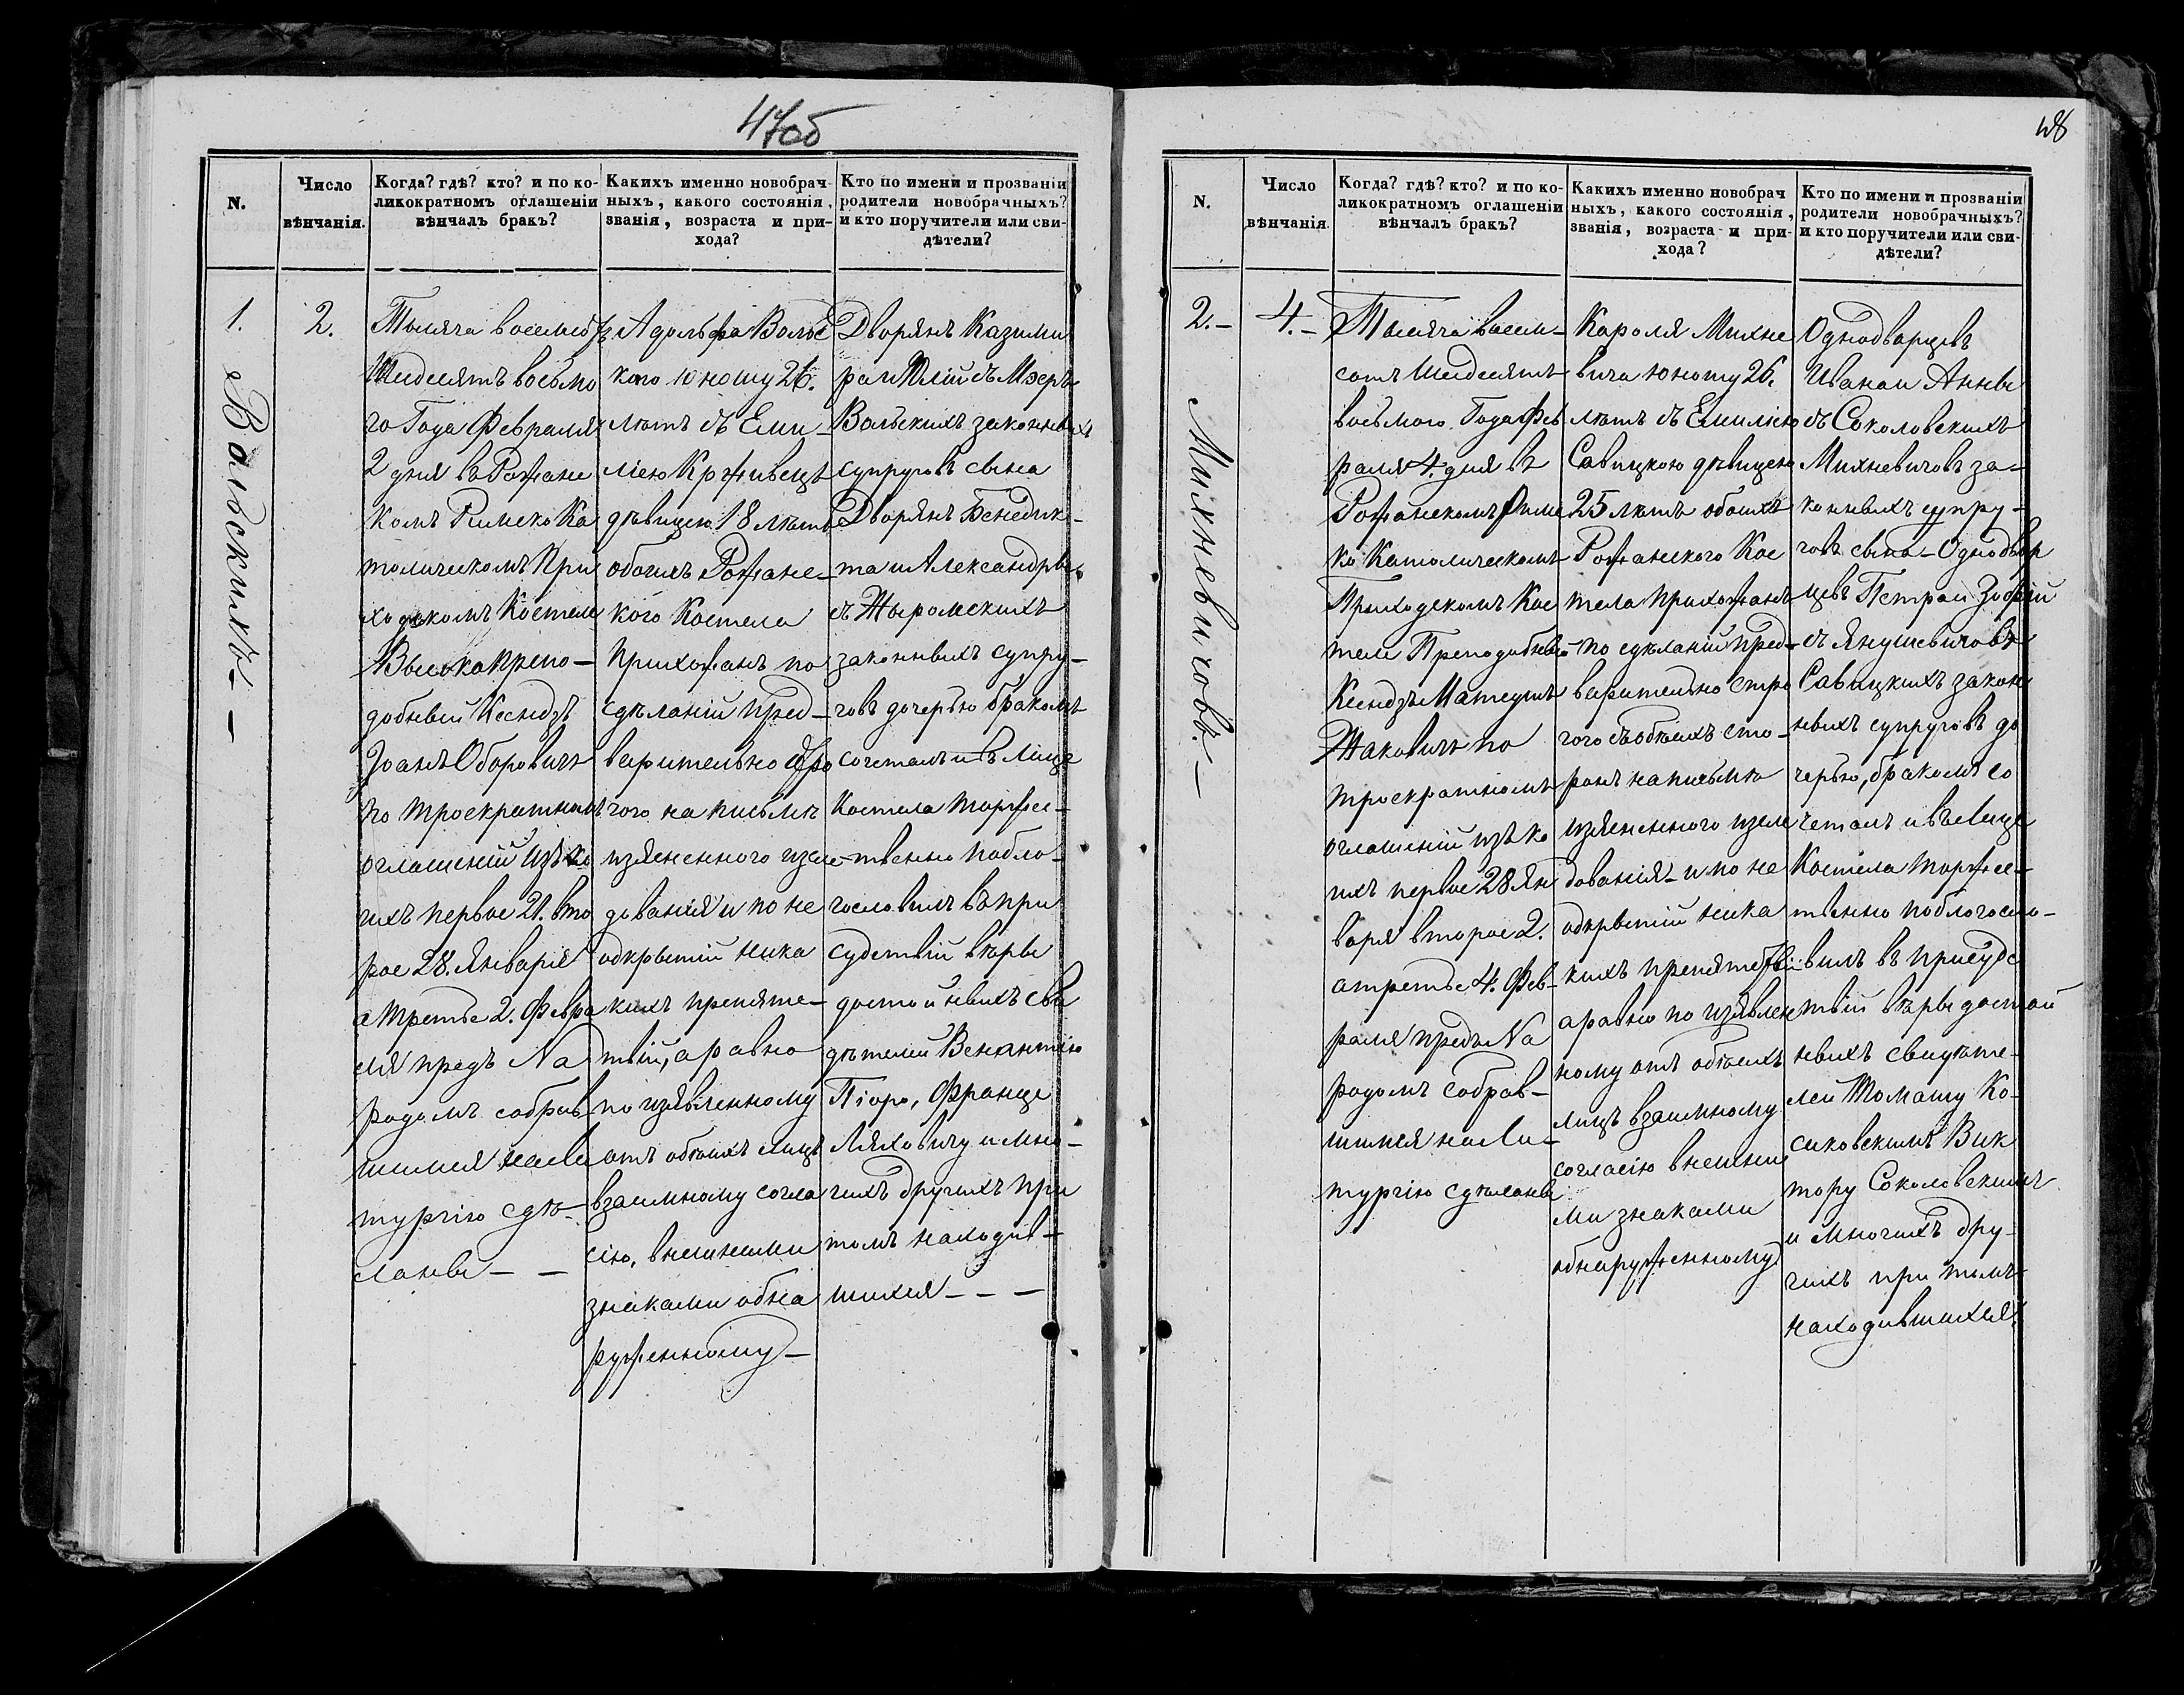 47об
N.
Число
вѣнчанія.
Когда? гдѣ? кто? и по ко-
ликократномъ оглашеніи
вѣнчалъ бракъ?
Какихъ именно новобрач-
ныхъ, какого состоянія,
званія, возраста и при-
хода?
Кто по имени и прозваніи
родители новобрачныхъ?
и кто поручители или сви-
дѣтели?
1.
Вольскихъ
2.
Тысяча восемьсотъ
Шидесятъ восьмо
го Года Февраля
2 дня въ Рожанс
комъ Римско Ка
толическомъ При
ходскомъ Костеле
Высокопрепо-
добный Ксендзъ
Іоанъ Оборовичъ
по троекратномъ
оглашеніи изъ ко
ихъ первое 21. вто
рое 28. Января
а третье 2. Февра
ля предъ На
родомъ собрав
шимся на Ли
тургію сдѣ-
ланы
Адольфа Вольс
кого юношу 26.
лѣтъ съ Еми-
ліею Крживецъ
дѣвицею 18 лѣтъ
обоихъ Рожанс-
кого Костела
Прихожанъ по
сдѣланіи пред-
варительно стро
гого на письмѣ
изясненного изсле-
дованія и по не
одкрытіи ника
кихъ препятс-
твій, а равно
по изявленному
отъ обѣихъ лицъ
взаимному согла
сію, внешними
знаками обна
руженному
Дворянъ Казими
ра и Юліи съ Мэеръ
Вольскихъ законныхъ
супруговъ сына
Дворянъ Бенедик-
та и Александры
съ Жыромскихъ
законныхъ супру-
говъ дочерью бракомъ
сочеталъ и въ Лице
Костела торжес-
твенно побло-
гословилъ въ при
судствіи вѣры
достойныхъ сви
дѣтелей Венантію
Піоро, Франце
Ляховичу и мно-
гихъ другихъ при
томъ находив-
шихся
48
N.
Число
вѣнчанія.
Когда? гдѣ? кто? и по ко-
ликократномъ оглашеніи
вѣнчалъ бракъ?
Какихъ именно новобрач
ныхъ, какого состоянія,
званія, возраста и при-
хода?
Кто по имени и прозваніи
родители новобрачныхъ?
и кто поручители или сви-
дѣтели?
2.
Михневичовъ.
4.
Тысяча восем-
сотъ Шидесятъ
восьмого Года Фев
раля 4. дня въ
Рожанскомъ Римс
ко Католическомъ
Приходскомъ Кос
теле Преподобный
Ксендзъ Матеушъ
Жаковичъ по
троекратномъ
оглашеніи изъ ко
ихъ первое 28 Ян
варя второе 2.
а третье 4. Фев-
раля предъ На
родомъ собрав-
шимся на Ли-
тургію сдѣланы
Кароля Михне
вича юношу 26.
лѣтъ съ Емилію
Савицкою дѣвицею
25 лѣтъ обоихъ
Рожанского Кос
тела прихожанъ
по сдѣланіи пред-
варительно стро
гого съ обѣихъ сто-
ронъ на письмѣ
изясненного изсле
дованія и по не
одкрытіи ника
кихъ препятствій
а равно по изявлен
ному отъ обѣихъ
лицъ взаимному
согласію внешни
ми знаками
обнаруженному
Однодворцевъ
Ивана и Анны
съ Соколовскихъ
Михневичовъ за-
конныхъ супру-
говъ сына Однодвор
цевъ Петра и Зофіи
съ Янушевичовъ
Савицкихъ закон
ныхъ супруговъ до
черью, бракомъ со
четалъ и въ Лице
Костела торжес-
твенно поблогосло-
вилъ въ присудс
твіи вѣры достой
ныхъ свидѣте-
лей Томашу Ко-
сиковскимъ Вик
тору Соколовскимъ
и многихъ дру-
гихъ при томъ
находившихся.